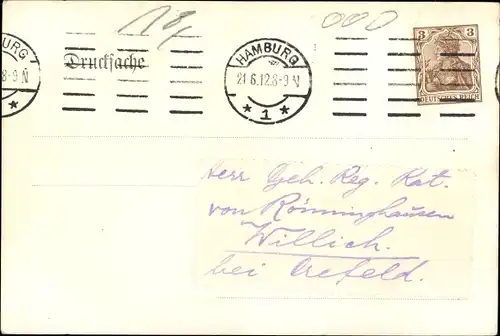 18/ 000
BURG 1
8-9 N
*
Drucksache
HAMBURG
21.6.12.8-9 N
* 1 *
3
DEUTSCHES REICH
Herr Geh. Reg. Rat.
von Rönninghausen
Willich.
bei Crefeld.